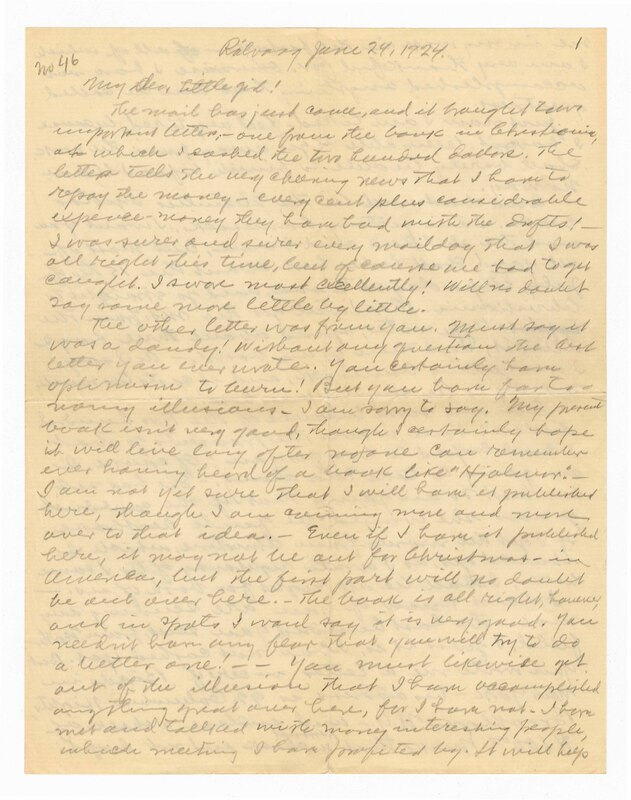 1
No 46
June 24, 1924.
My Dear Little girl!
The mail has just come, and it brought two
important letters, - one from the bank in Christiania,
at which I cashed the two hundred dollars. The
letter tells the very cheering news that I have to
repay the money - every cent plus considerable
expence-money they have had with the drafts! -
I was surer and surer every mailday that I was
all right this time, but of course me had to get
caught. I swore most excellently! Will no doubt
say some more little by little.
The other letter was from you. Must say it
was a dandy! Without any question the best
letter you ever wrote. You certainly have
optimism to burn! But you have far too
many illusions - I am sorry to say. My present
book isn't very good, though I certainly hope
it will live long after no one can remember
ever having heard of a book like "Hjalmar". -
I am not yet sure that I will have it published
here, though I am coming more and more
over to that idea. - Even if I have it published
here, it may not be out for Christmas - in
America, but the first part will no doubt
be out over here. - The book is all right, however,
and in spots I want say it is very good. You
needn't have any fear that you will try to do
a better one! - - You must likewise get
out of the illusion that I have accomplished
anything great over here, for I have not. I have
met and talked with many interesting people,
which meeting I have profited by. It will help